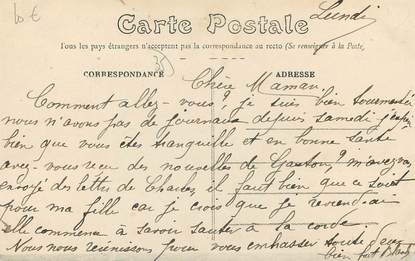 10 €
Lundi
Carte Postale
Tous les pays étrangers n'acceptent pas la correspondance au recto (Se renseigner à la Poste)
CORRESPONDANCE
ADRESSE
Chère Maman
Comment allez-vous? je suis bien tourmentée
nous n'avons pas de journaux depuis samedi j'espère
bien que vous êtes tranquille et en bonne santé
avez-vous reçu des nouvelles de Gaston? m'avez-vous
envoyé des lettres de il faut bien que ce soit
pour ma fille car je crois que je
elle commence à savoir sauter à la corde
Nous nous réunissons pour vous embrasser toutes deux
bien fort